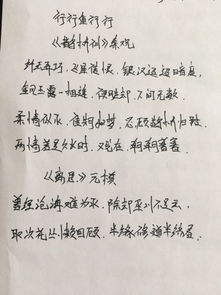 行行重行行
《鹊桥仙》秦观
纤云弄巧,飞星传恨,银汉迢迢暗度,
金风玉露一相逢,便胜却人间无数。
柔情似水,佳期如梦,忍顾鹊桥归路,
两情若是久长时,又岂在朝朝暮暮。
《离思》元稹
曾经沧海难为水,除却巫山不是云,
取次花丛懒回顾,半缘修道半缘君。